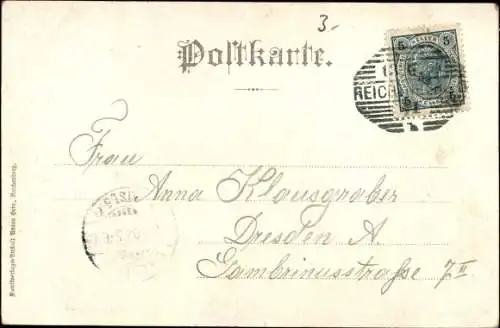 3.-
Postkarte.
5 5
REICH
Frau
Anna Klausgraber
Dresden A.
Gambrinusstraße 7 II